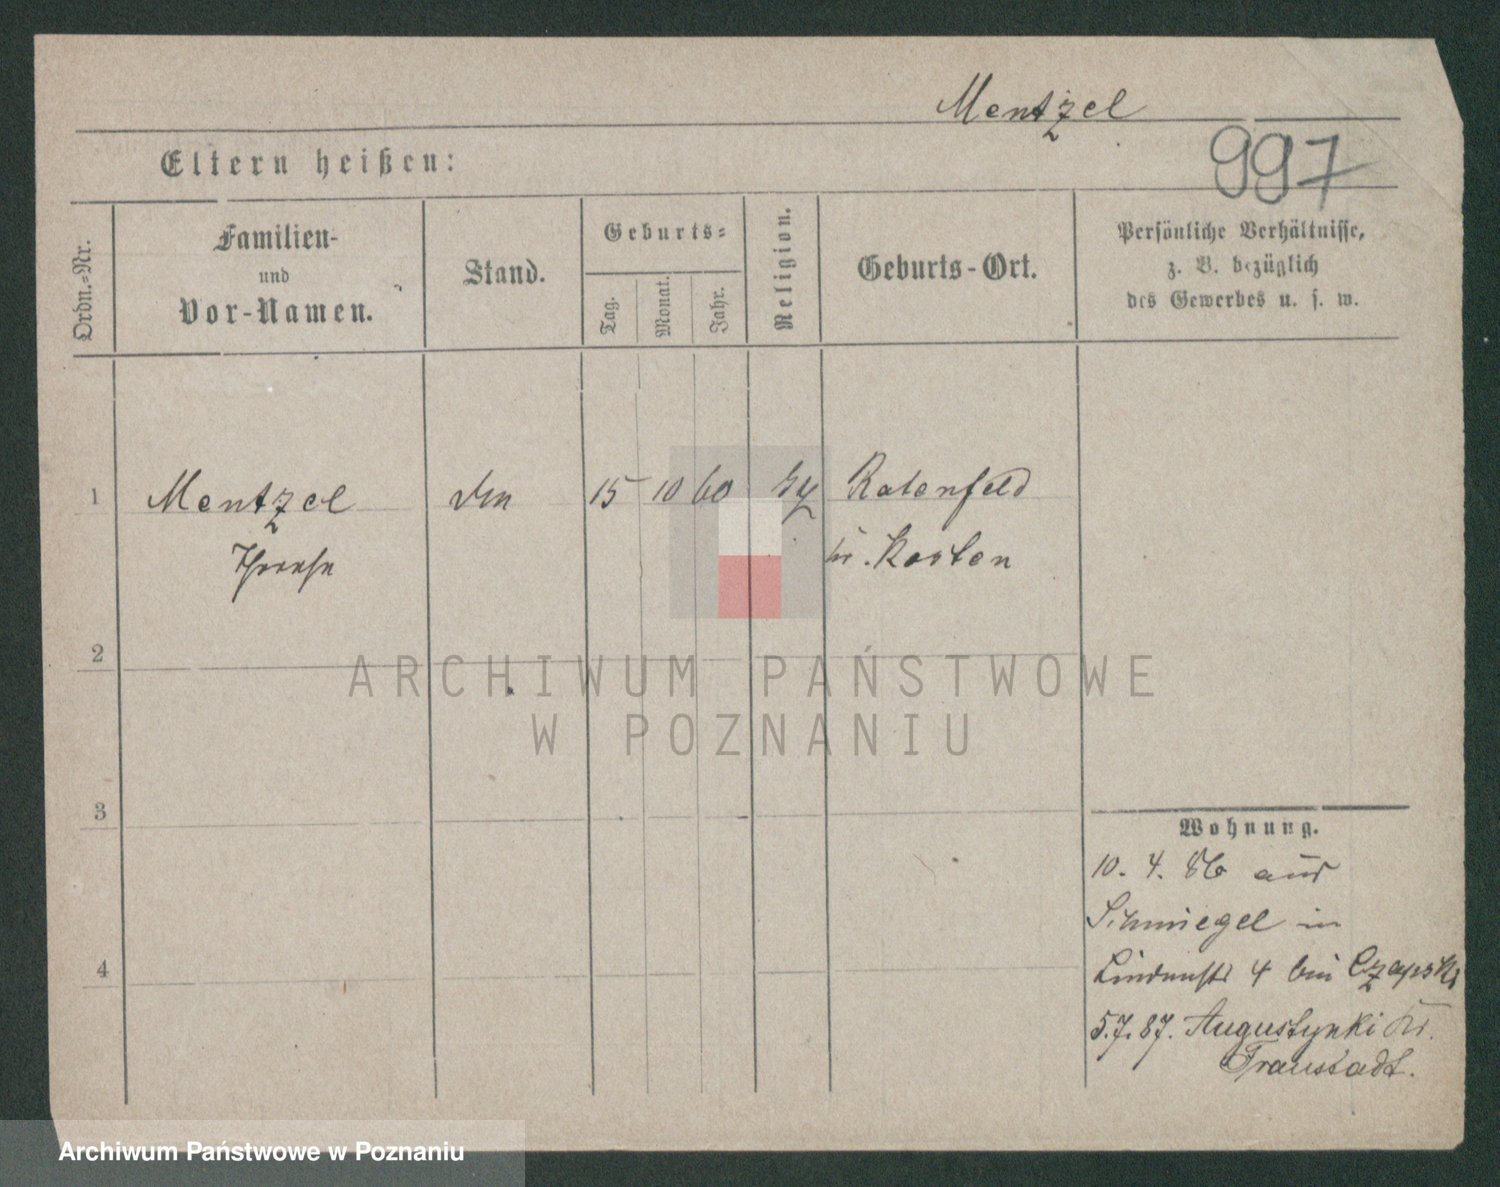 Mentzel
997
Eltern heißen:
Ordn.-Nr.
Familien-
und
Vor-Namen.
Stand.
Geburts-
Tag.
Monat.
Jahr.
Religion.
Geburts-Ort.
Persönliche Verhältnisse,
z. B. bezüglich
des Gewerbes u. s. w.
1 Mentzel 15 10 60 Ratenfeld
Therese Kr. Kosten
2
ARCHIWUM PAŃSTWOWE
W POZNANIU
3
Wohnung.
10. 4. 86 aus
Schmiegel in
4
Lindenstr 4 bei Czapski
5.7.87. Augustynki Kr.
Fraustadt.
Archiwum Państwowe w Poznaniu